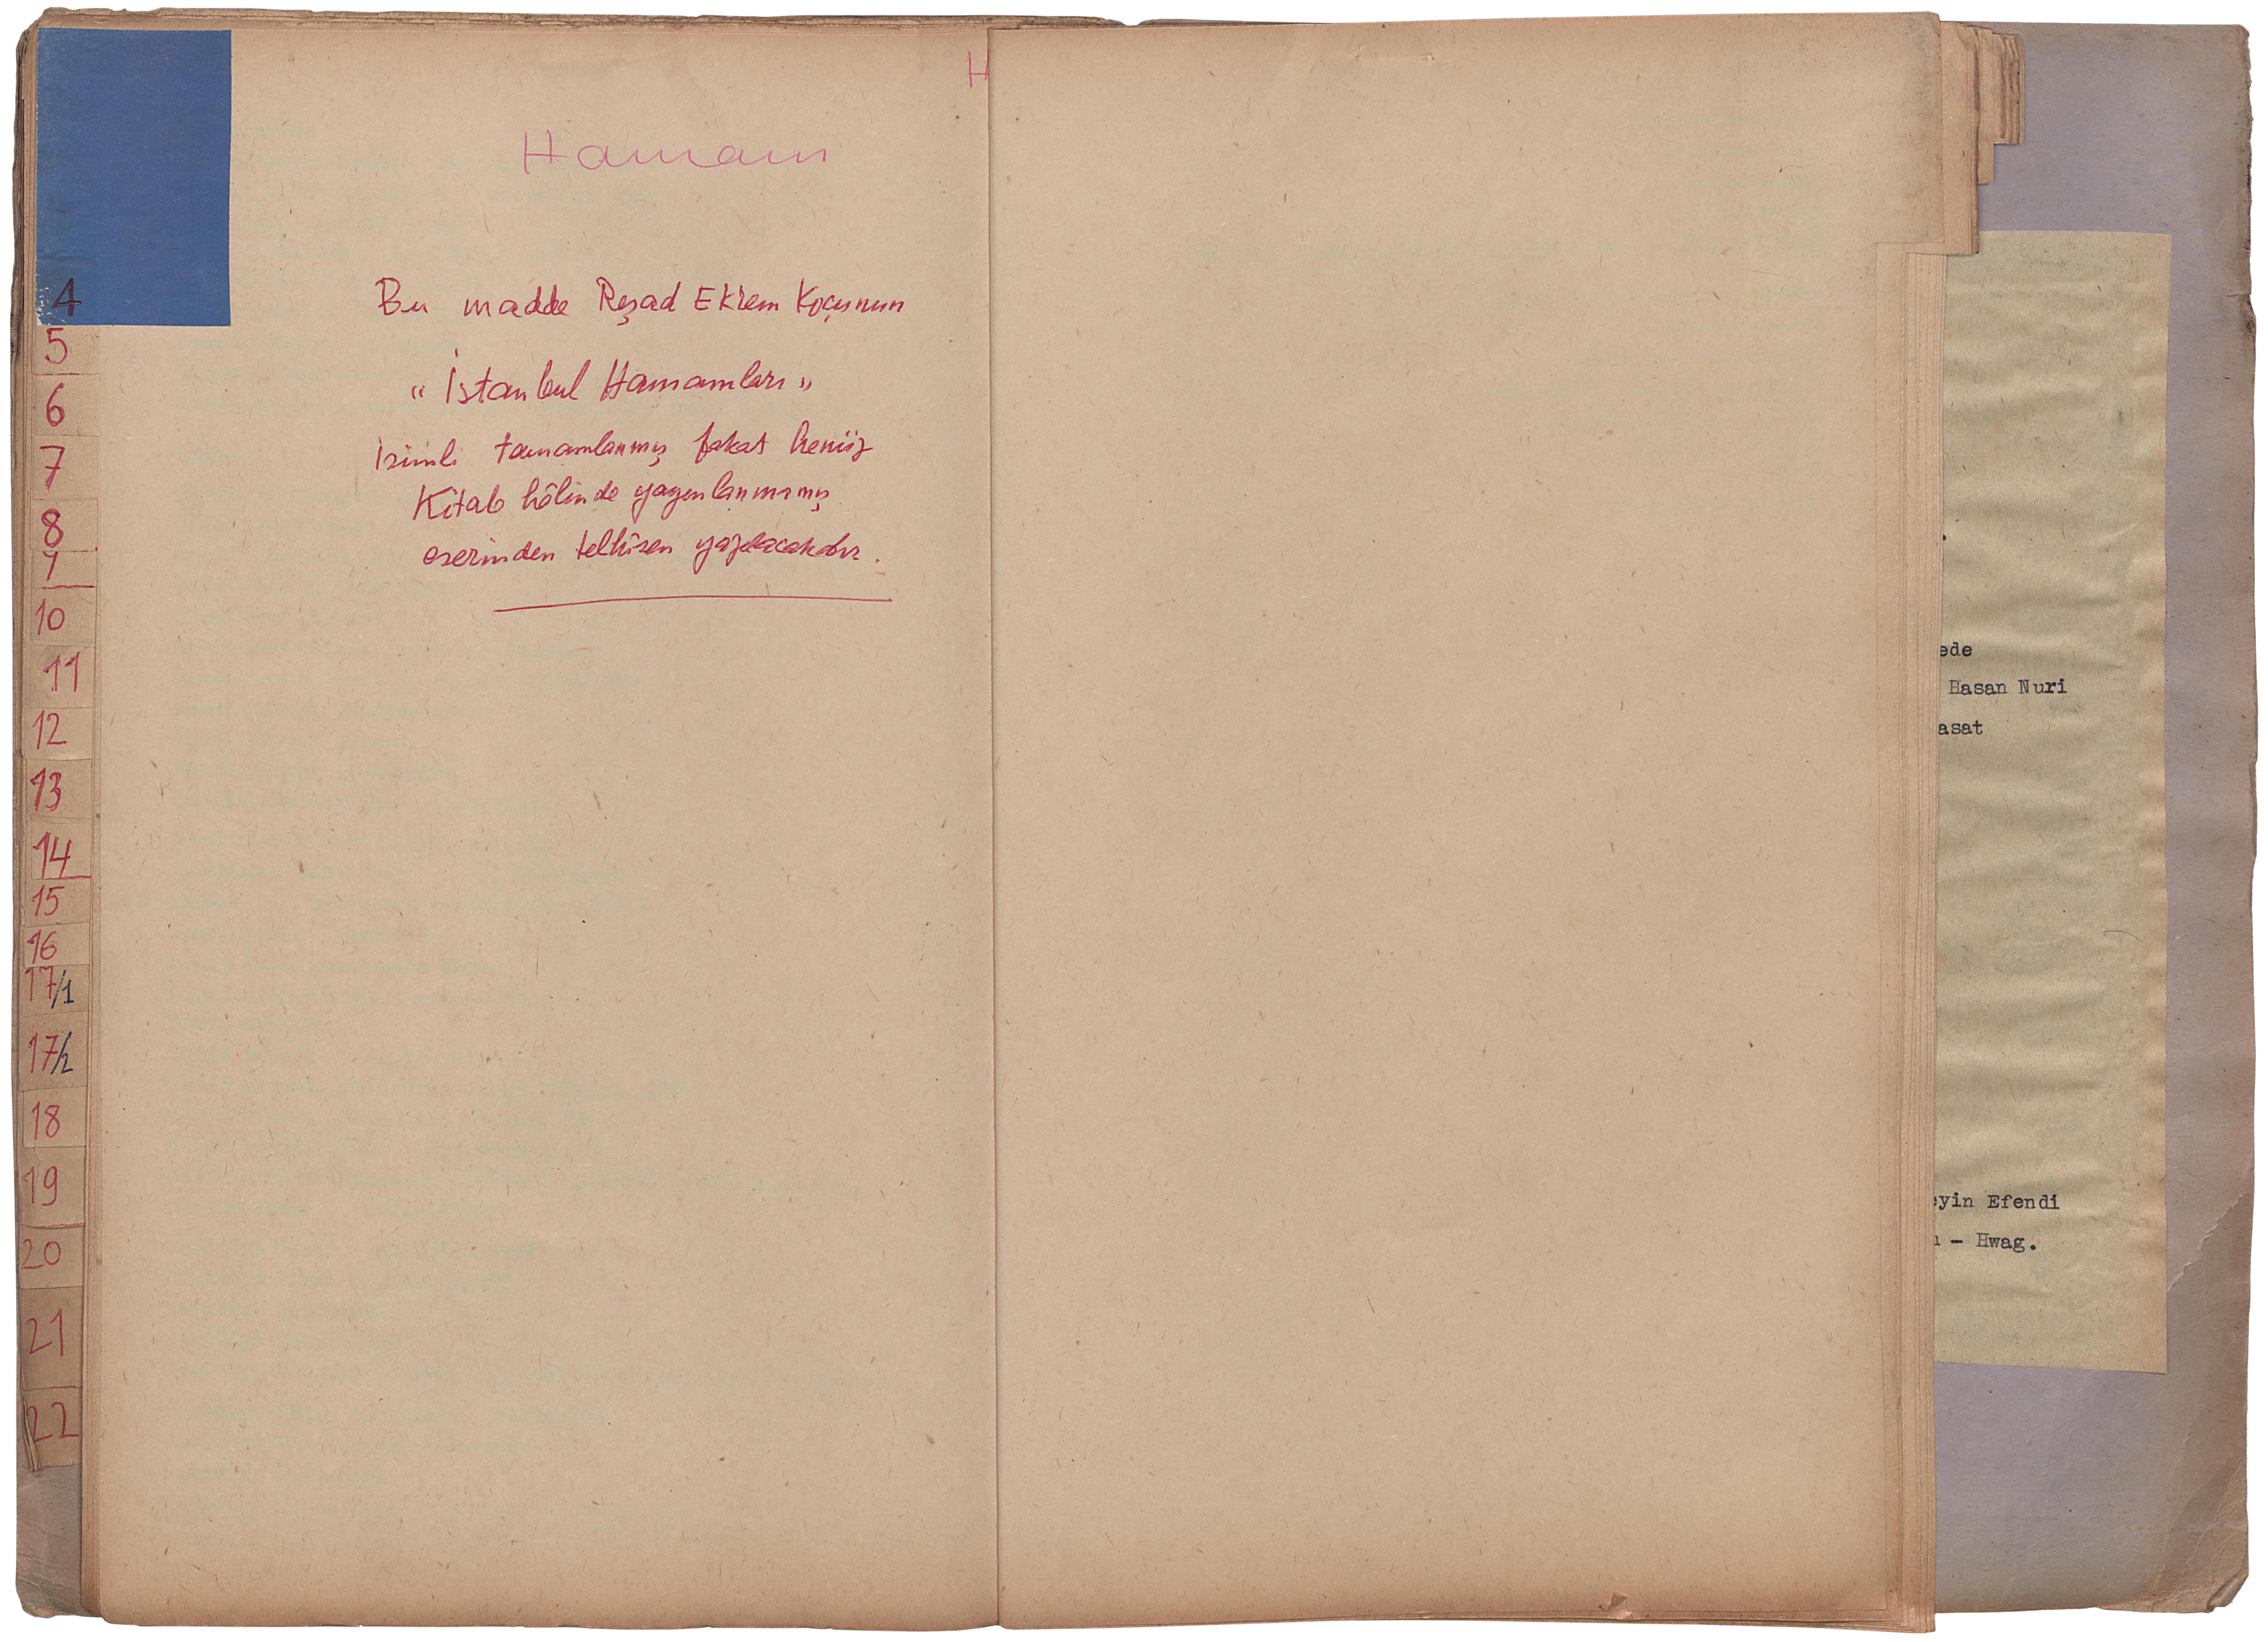 H
Hamam
Bu madde Reşad Ekrem Koçunun
"İstanbul Hamamları"
isimli tamamlanmış fakat henüz
Kitab hâlinde yayınlanmamış
eserinden telhisen yazılacakdır.
4
5
6
7
8
10
11
12
13
14
15
16
17/1
17/2
18
19
20
21
22
ede
Hasan Nuri
asat
eyin Efendi
- Hwag.